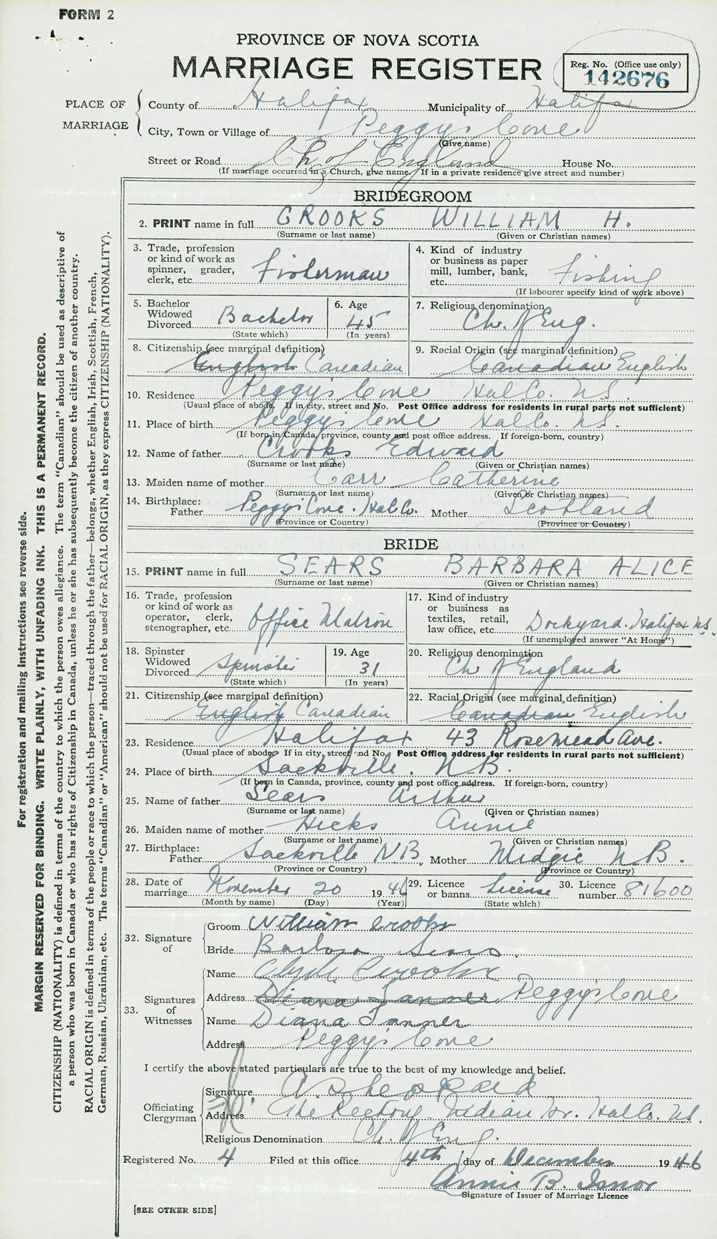 FORM 2
PROVINCE OF NOVA SCOTIA
MARRIAGE REGISTER
Reg. No. (Office use only)
142676
PLACE OF MARRIAGE
County of Halifax Municipality of Halifax
City, Town or Village of Peggys Cove
(Give name)
Street or Road Ch of England House No.
(If marriage occurred in a Church, give name. If in a private residence give street and number)
BRIDEGROOM
2. PRINT name in full CROOKS WILLIAM H.
(Surname or last name) (Given or Christian names)
3. Trade, profession or kind of work as spinner, grader, clerk, etc. Fisherman
4. Kind of industry or business as paper mill, lumber, bank, etc. Fishing
(If labourer specify kind of work above)
5. Bachelor Widowed Divorced Bachelor
(State which)
6. Age 45
(In years)
7. Religious denomination Ch. of Eng.
8. Citizenship (see marginal definition) English Canadian
9. Racial Origin (see marginal definition) Canadian English
10. Residence Peggy's Cove Hal Co. N.S.
(Usual place of abode. If in city, street and No. Post Office address for residents in rural parts not sufficient)
11. Place of birth Peggys Cove Hal Co. N.S.
(If born in Canada, province, county and post office address. If foreign-born, country)
12. Name of father Crooks Edward
(Surname or last name) (Given or Christian names)
13. Maiden name of mother Carr Catherine
(Surname or last name) (Given or Christian names)
14. Birthplace: Father Peggy's Cove. Hal Co. Mother Scotland
(Province or Country) (Province or Country)
BRIDE
15. PRINT name in full SEARS BARBARA ALICE
(Surname or last name) (Given or Christian names)
16. Trade, profession or kind of work as operator, clerk, stenographer, etc. Office Matron
17. Kind of industry or business as textiles, retail, law office, etc. Dockyard. Halifax N.S.
(If unemployed answer "At Home")
18. Spinster Widowed Divorced Spinster
(State which)
19. Age 31
(In years)
20. Religious denomination Ch of England
21. Citizenship (see marginal definition) English Canadian
22. Racial Origin (see marginal definition) Canadian English
23. Residence Halifax 43 Rosemead Ave.
(Usual place of abode. If in city, street and No. Post Office address for residents in rural parts not sufficient)
24. Place of birth Sackville. N.B.
(If born in Canada, province, county and post office address. If foreign-born, country)
25. Name of father Sears Arthur
(Surname or last name) (Given or Christian names)
26. Maiden name of mother Hicks Annie
(Surname or last name) (Given or Christian names)
27. Birthplace: Father Sackville NB. Mother Midgic N.B.
(Province or Country) (Province or Country)
28. Date of marriage November 20 1946
(Month by name) (Day) (Year)
29. Licence or banns License
(State which)
30. Licence number 81600
32. Signature of
Groom William Crooks
Bride Barbara Sears.
33. Signatures of Witnesses
Name Clyde Crooks
Address Diana Tanner Peggys Cove
Name Diana Tanner
Address Peggy's Cove
I certify the above stated particulars are true to the best of my knowledge and belief.
Officiating Clergyman
Signature
Address The Rectory Indian Hr. Hal Co. N.S.
Religious Denomination Ch. of Eng.
Registered No. 4 Filed at this office 4th day of December 1946
Annie B. Isnor
Signature of Issuer of Marriage Licence
[SEE OTHER SIDE]
For registration and mailing instructions see reverse side.
MARGIN RESERVED FOR BINDING. WRITE PLAINLY, WITH UNFADING INK. THIS IS A PERMANENT RECORD.
CITIZENSHIP (NATIONALITY) is defined in terms of the country to which the person owes allegiance. The term "Canadian" should be used as descriptive of
a person who was born in Canada or who has rights of Citizenship in Canada, unless he or she has subsequently become the citizen of another country.
RACIAL ORIGIN is defined in terms of the people or race to which the person—traced through the father—belongs, whether English, Irish, Scottish, French,
German, Russian, Ukrainian, etc. The terms "Canadian" or "American" should not be used for RACIAL ORIGIN, as they express CITIZENSHIP (NATIONALITY).